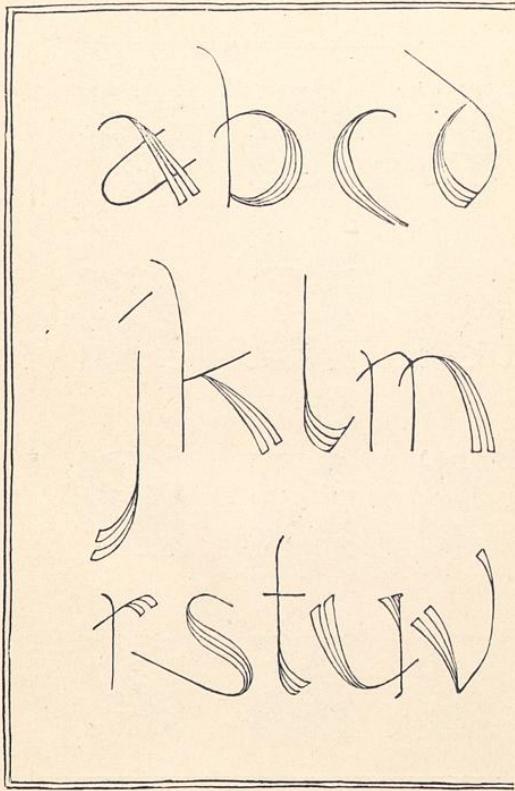 abcd
jklm
rstuv